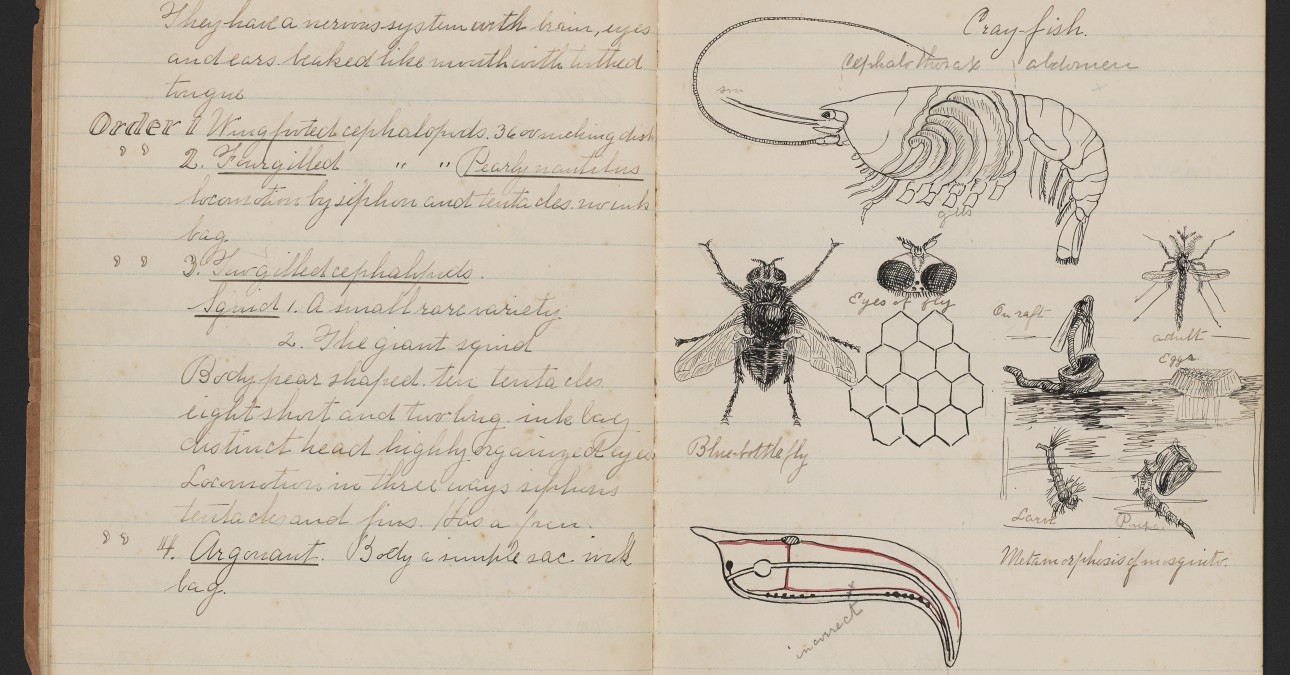 They have a nervous system with brain, eyes
and ears beaked like mouth with toothed
tongue
Order 1 Wing footed cephalopods. 3600 sucking disk
" " 2. Four gilled " " (Pearly nautilus
locomotion by siphon and tentacles. no ink
bag.
" " 3. Two gilled cephalopods.
Squid 1. A small rare variety
2. The giant squid
Body pear shaped. ten tentacles
eight short and two long. ink bag
distinct head highly organized eyes
Locomotion in three ways siphons
tentacles and fins. Has a pen.
" " 4. Argonaut. Body a simple sac. ink
bag.
Cray-fish.
Cephalothorax abdomen
gills
Eyes of fly
Blue-bottle fly
On raft
adult
Eggs
Larva
Pupa
Metamorphosis of mosquito.
incorrect